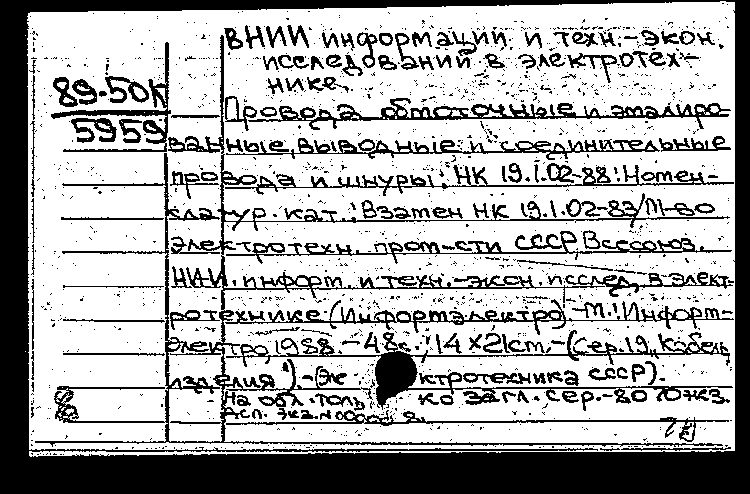 ВНИИ информации и техн.-экон.
исследований в электротех-
нике.
89-50К
5959
Провода обмоточные и эмалиро-
ванные, выводные и соединительные
провода и шнуры: НК 19.1.02-88: Номен-
клатур. кат.: Взамен НК 19.1.02-83/М-во
электротехн. пром-сти СССР, Всесоюз.
НИИ. информ. и техн.-экон. исслед. в элект-
ротехнике (Информэлектро).-М.: Информ-
электро, 1988.-48с.; 14×21cm.-(Сер.19, „Кабель.
изделия")-(Эле ктротехника СССР).
На обл. толь ко загл. сер.-8070экз.
8